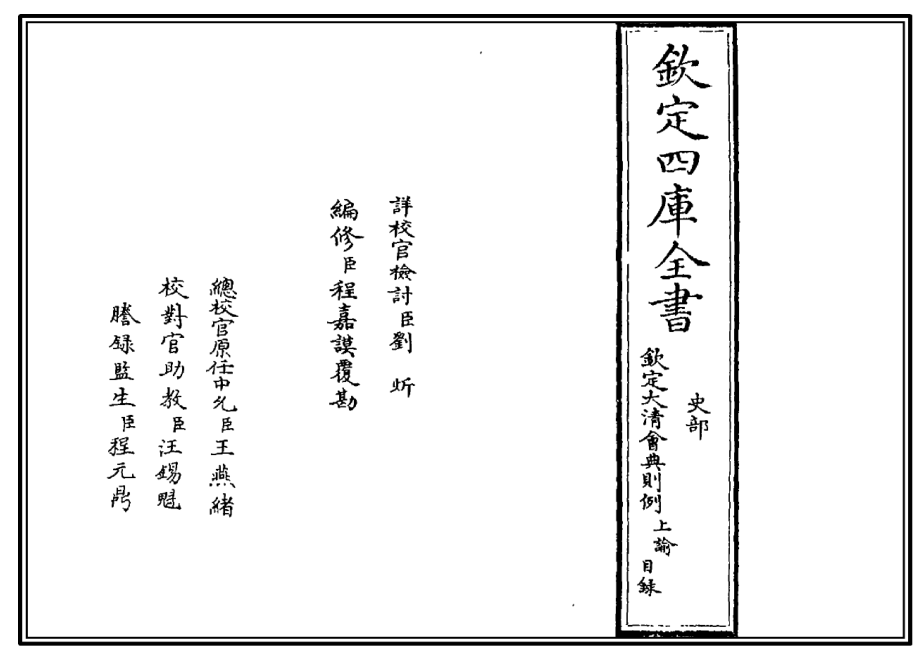 欽定四庫全書
史部
欽定大清會典則例
上諭
目録
詳校官檢討臣劉
編修臣程嘉謨覆勘
總校官原任中允臣王燕緒
校對官助教臣汪錫魁
謄録監生臣程元